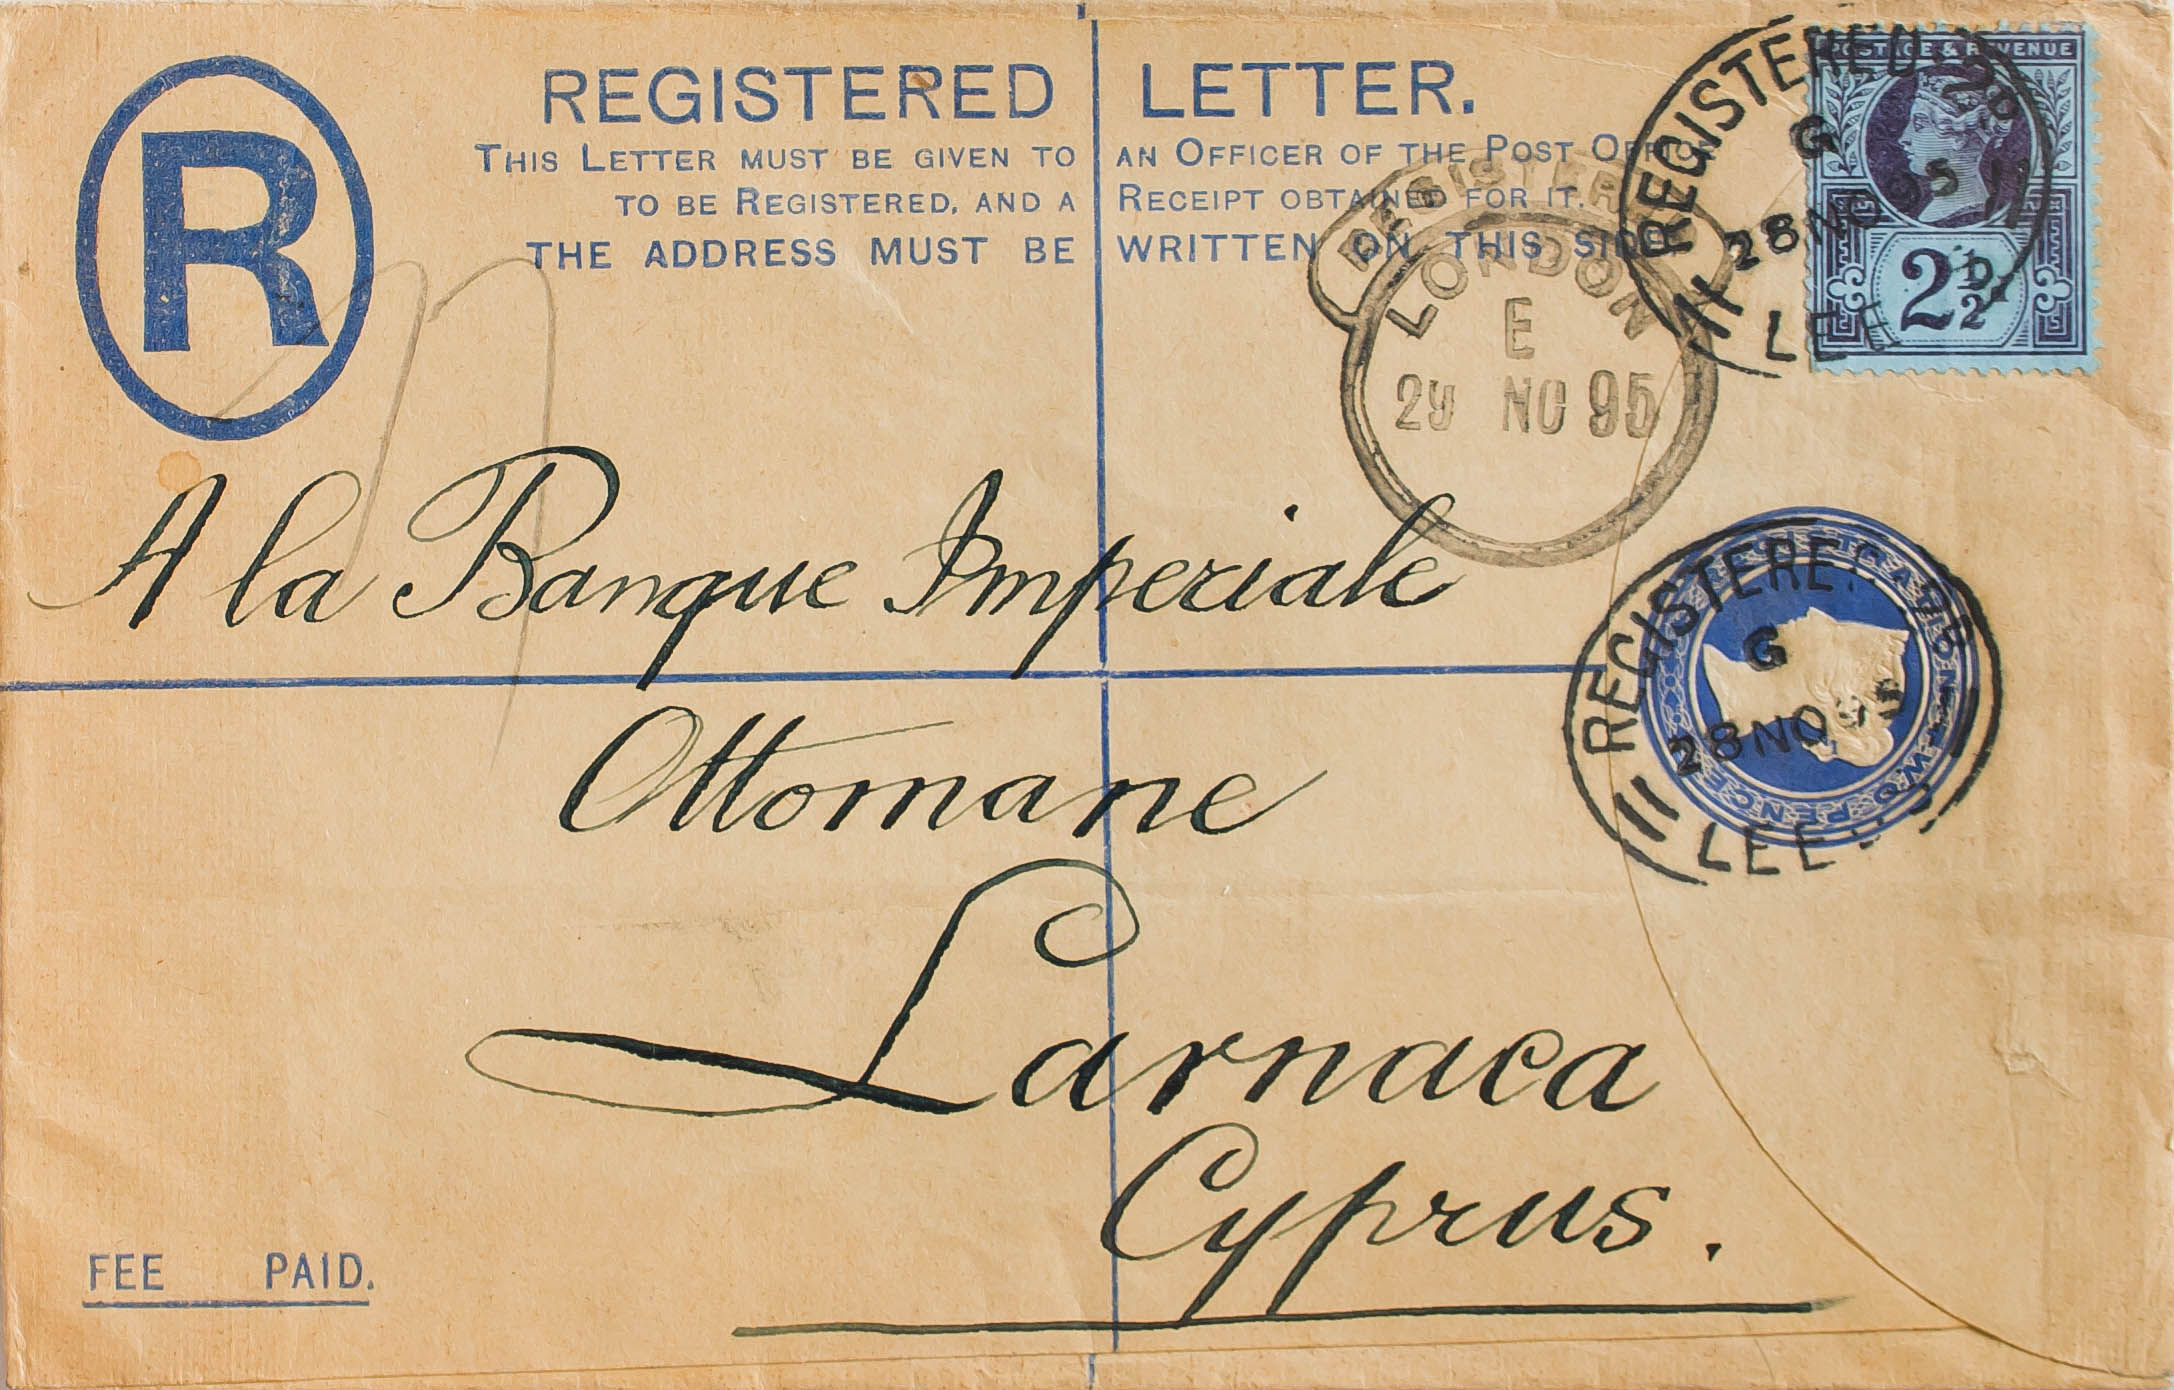 R
REGISTERED LETTER.
THIS LETTER MUST BE GIVEN TO AN OFFICER OF THE POST OFFICE
TO BE REGISTERED, AND A RECEIPT OBTAINED FOR IT.
THE ADDRESS MUST BE WRITTEN ON THIS SIDE.
POSTAGE & REVENUE
2½D.
REGISTERED
G
28 NO 95
LEE
REGISTERED
LONDON
E
29 NO 95
A la Banque Imperiale
Ottomane
Larnaca
Cyprus.
REGISTRATION TWO PENCE
REGISTERED
G
28 NO 95
LEEDS
FEE PAID.